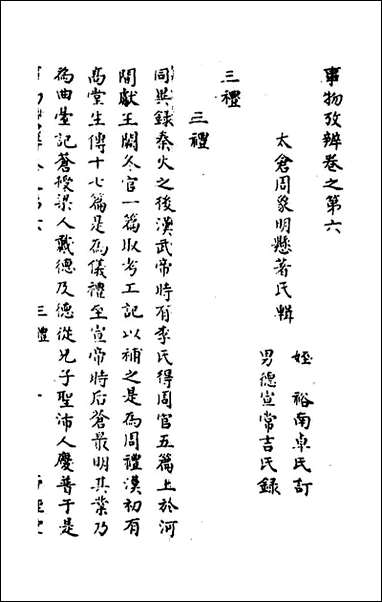 事物攷辨卷之第六
太倉周象明懸著氏輯
姪裕南卓氏訂
男德宣常吉氏錄
三禮
三禮
同異錄秦火之後漢武帝時有李氏得周官五篇上於河
間獻王闕冬官一篇取考工記以補之是為周禮漢初有
高堂生傳十七篇是為儀禮至宣帝時后蒼最明其業乃
為曲臺記蒼授梁人戴德及德從兄子聖沛人慶普于是
三禮